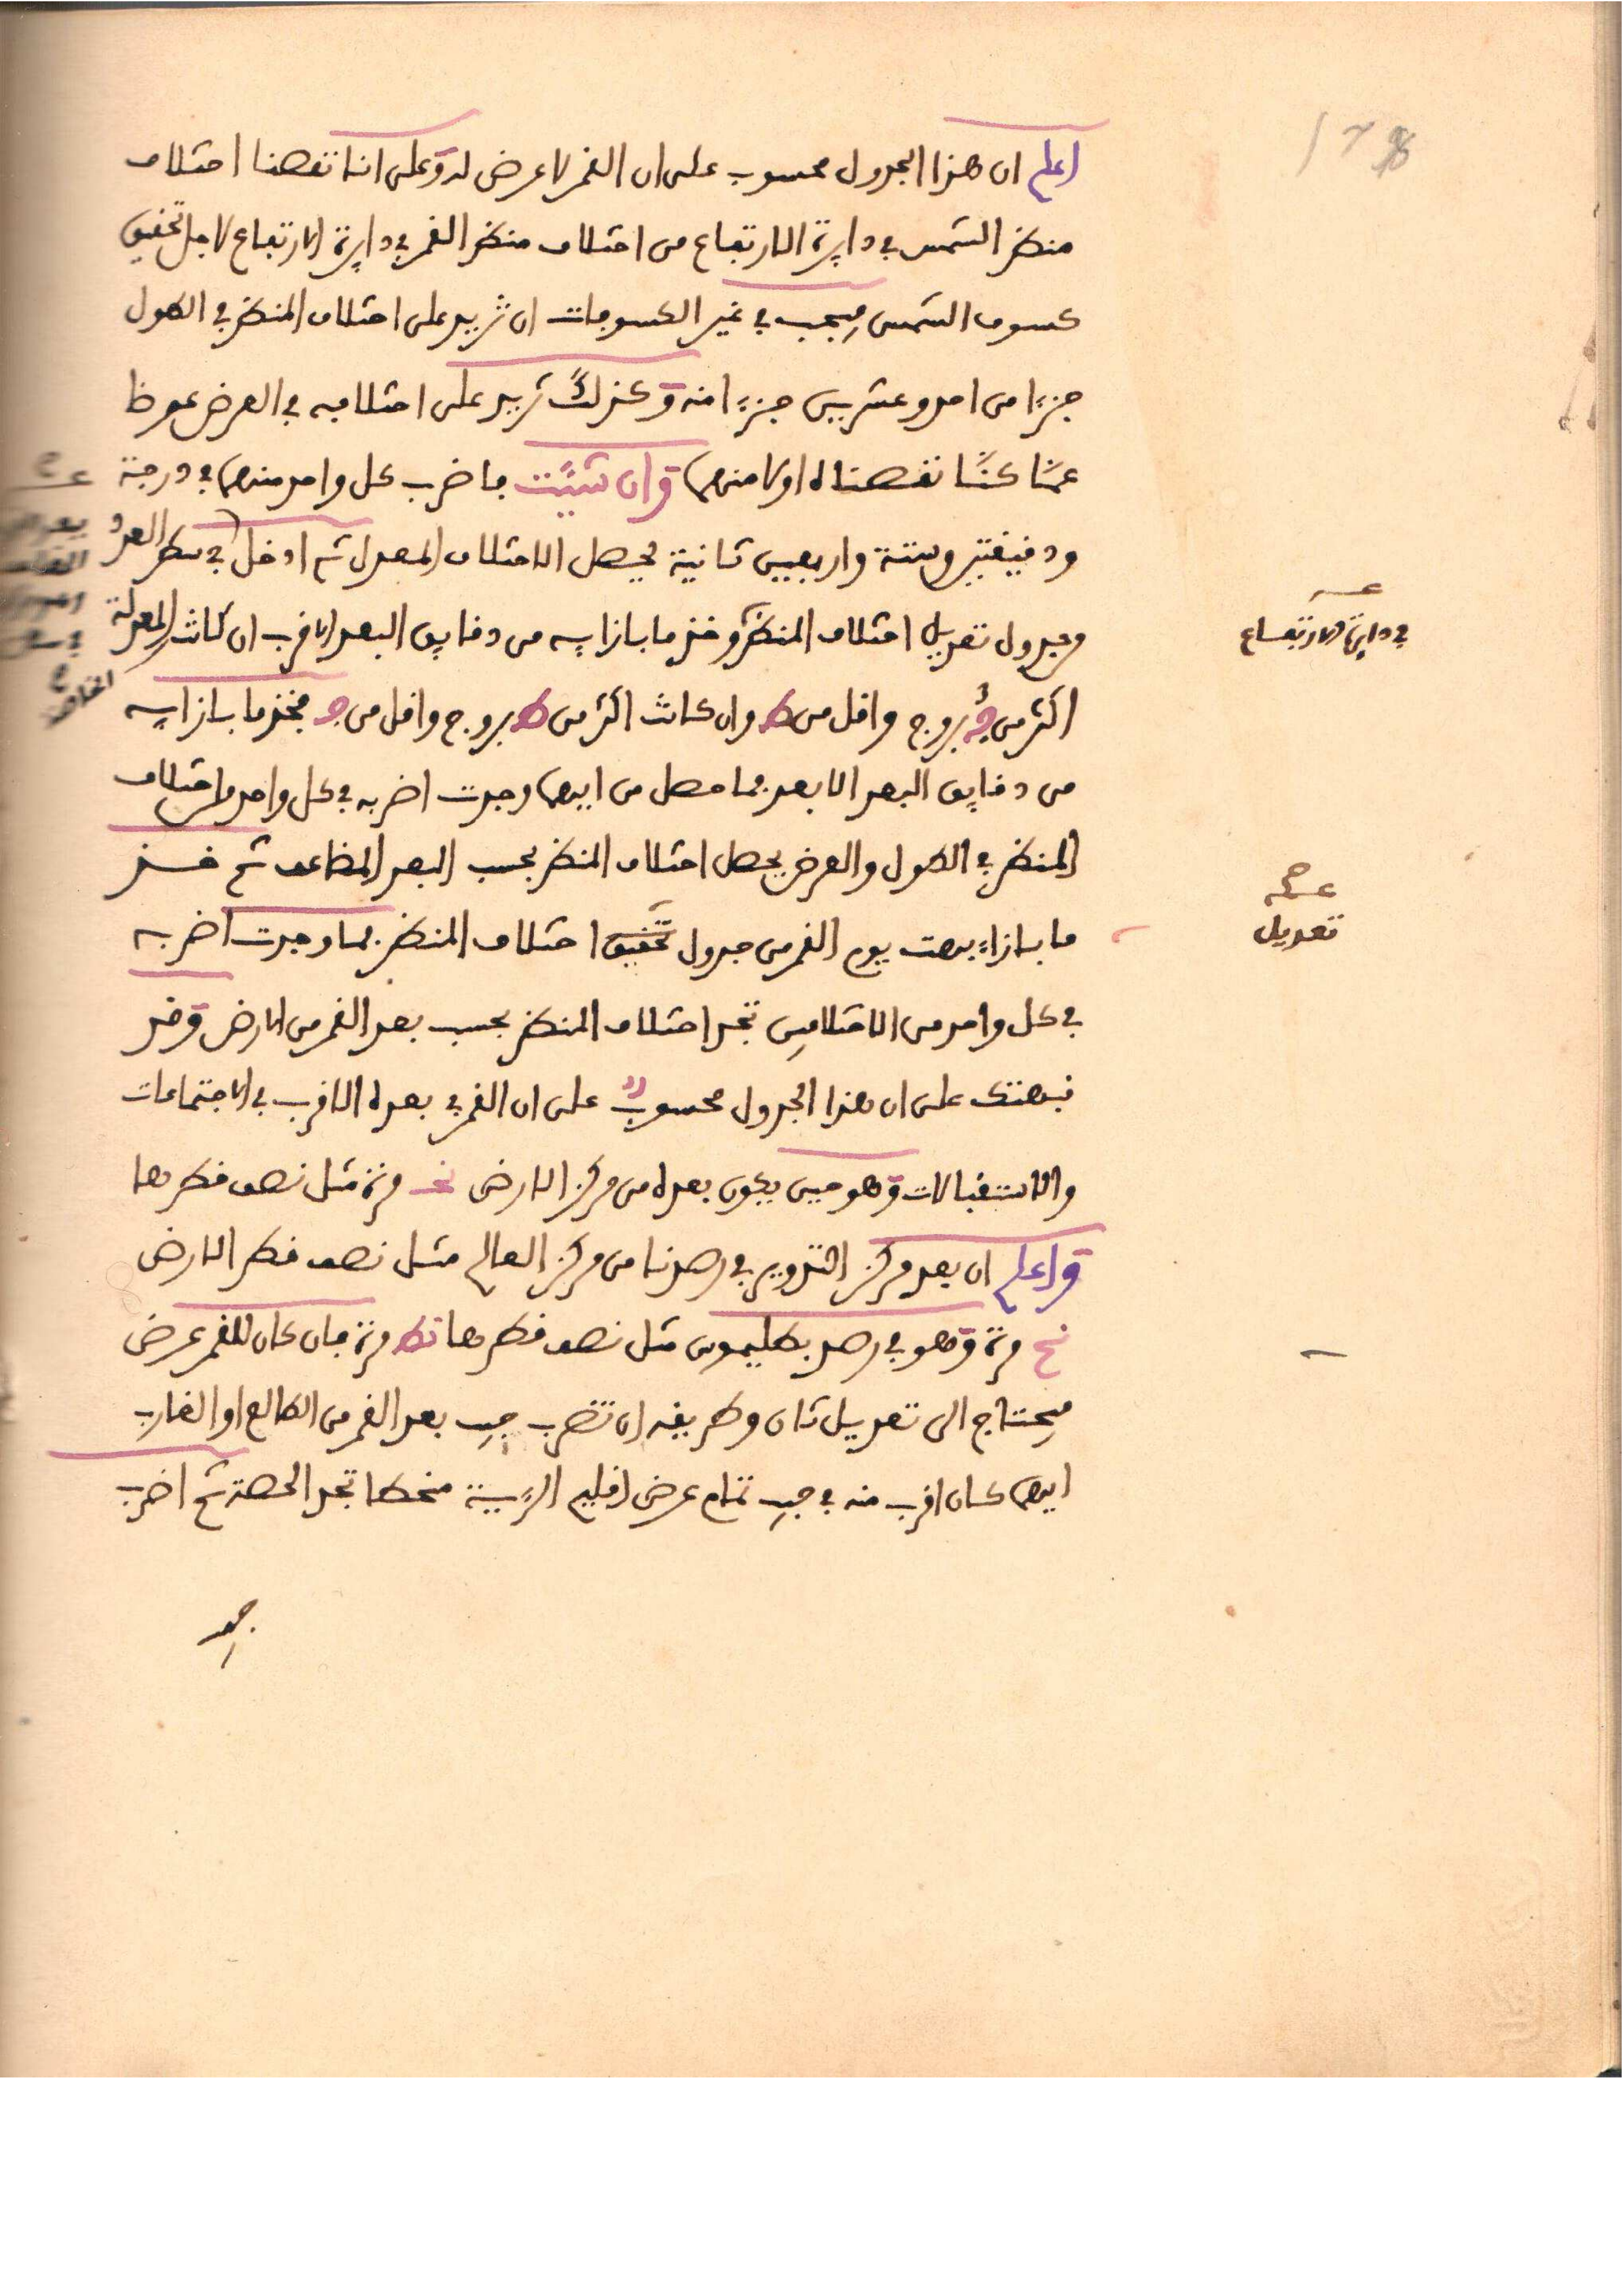 اعلم ان هذا الجدول محسوب على ان القمر لا عرض له وعلى اننا نقصنا اختلاف
منظر الشمس في دايرة الارتفاع من اختلاف منظر القمر في دايرة الارتفاع لاجل تحقيق
كسوف الشمس فيجب في غير الكسوفات ان تزيد على اختلاف المنظر في الطول
جزءا من احد وعشريين جزءا منه وكذلك تزيد على اختلافه في العرض عوضا
عمّا كنّا نقصناه اولا منهما وان شيت فاضرب كل واحد منهما في درجة
ودقيقتين وستة واربعيين ثانية يحصل الاختلاف المعدل ثم ادخل في سطر العدد
وجدول تعديل اختلاف المنظر وخذ ما بازايه من دقايق البعد الاقرب ان كانت المعدلة
اكثر من ج بروج واقل من ط وان كانت اكثر من ط بروج واقل من ج فخذ ما بازايه
من دقايق البعد الابعد فما حصل من ايهما وجدت اضربه في كل واحد من اختلاف
المنظر في الطول والعرض يحصل اختلاف المنظر بحسب البعد المضاعف ثم خذ
ما بازاء بهت يوم القمر من جدول تحقيق اختلاف المنظر فما وجدت اضربه
في كل واحد من الاختلافين تجد اختلاف المنظر بحسب بعد القمر من الارض وقد
نبهتك على ان هذا الجدول محسوب على ان القمر في بعده الاقرب في الاجتماعات
والاستقبالات وهو حين يكون بعده من مركز الارض نحـ مرة مثل نصف قطرها
واعلم ان بعد مركز التدوير في رصدنا من مركز العالم مثل نصف قطر الارض
نح مرة وهو في رصد بطليموس مثل نصف قطرها نط مرة فان كان للقمر عرض
فيحتاج الى تعديل ثان وطريقه ان تضرب جيب بعد القمر من الطالع او الغارب
ايهما كان اقرب منه في جيب تمام عرض اقليم الروية منحطا تجد الحصة ثم اضرب
جيب
في دايرة الارتفاع
صح
تعديل